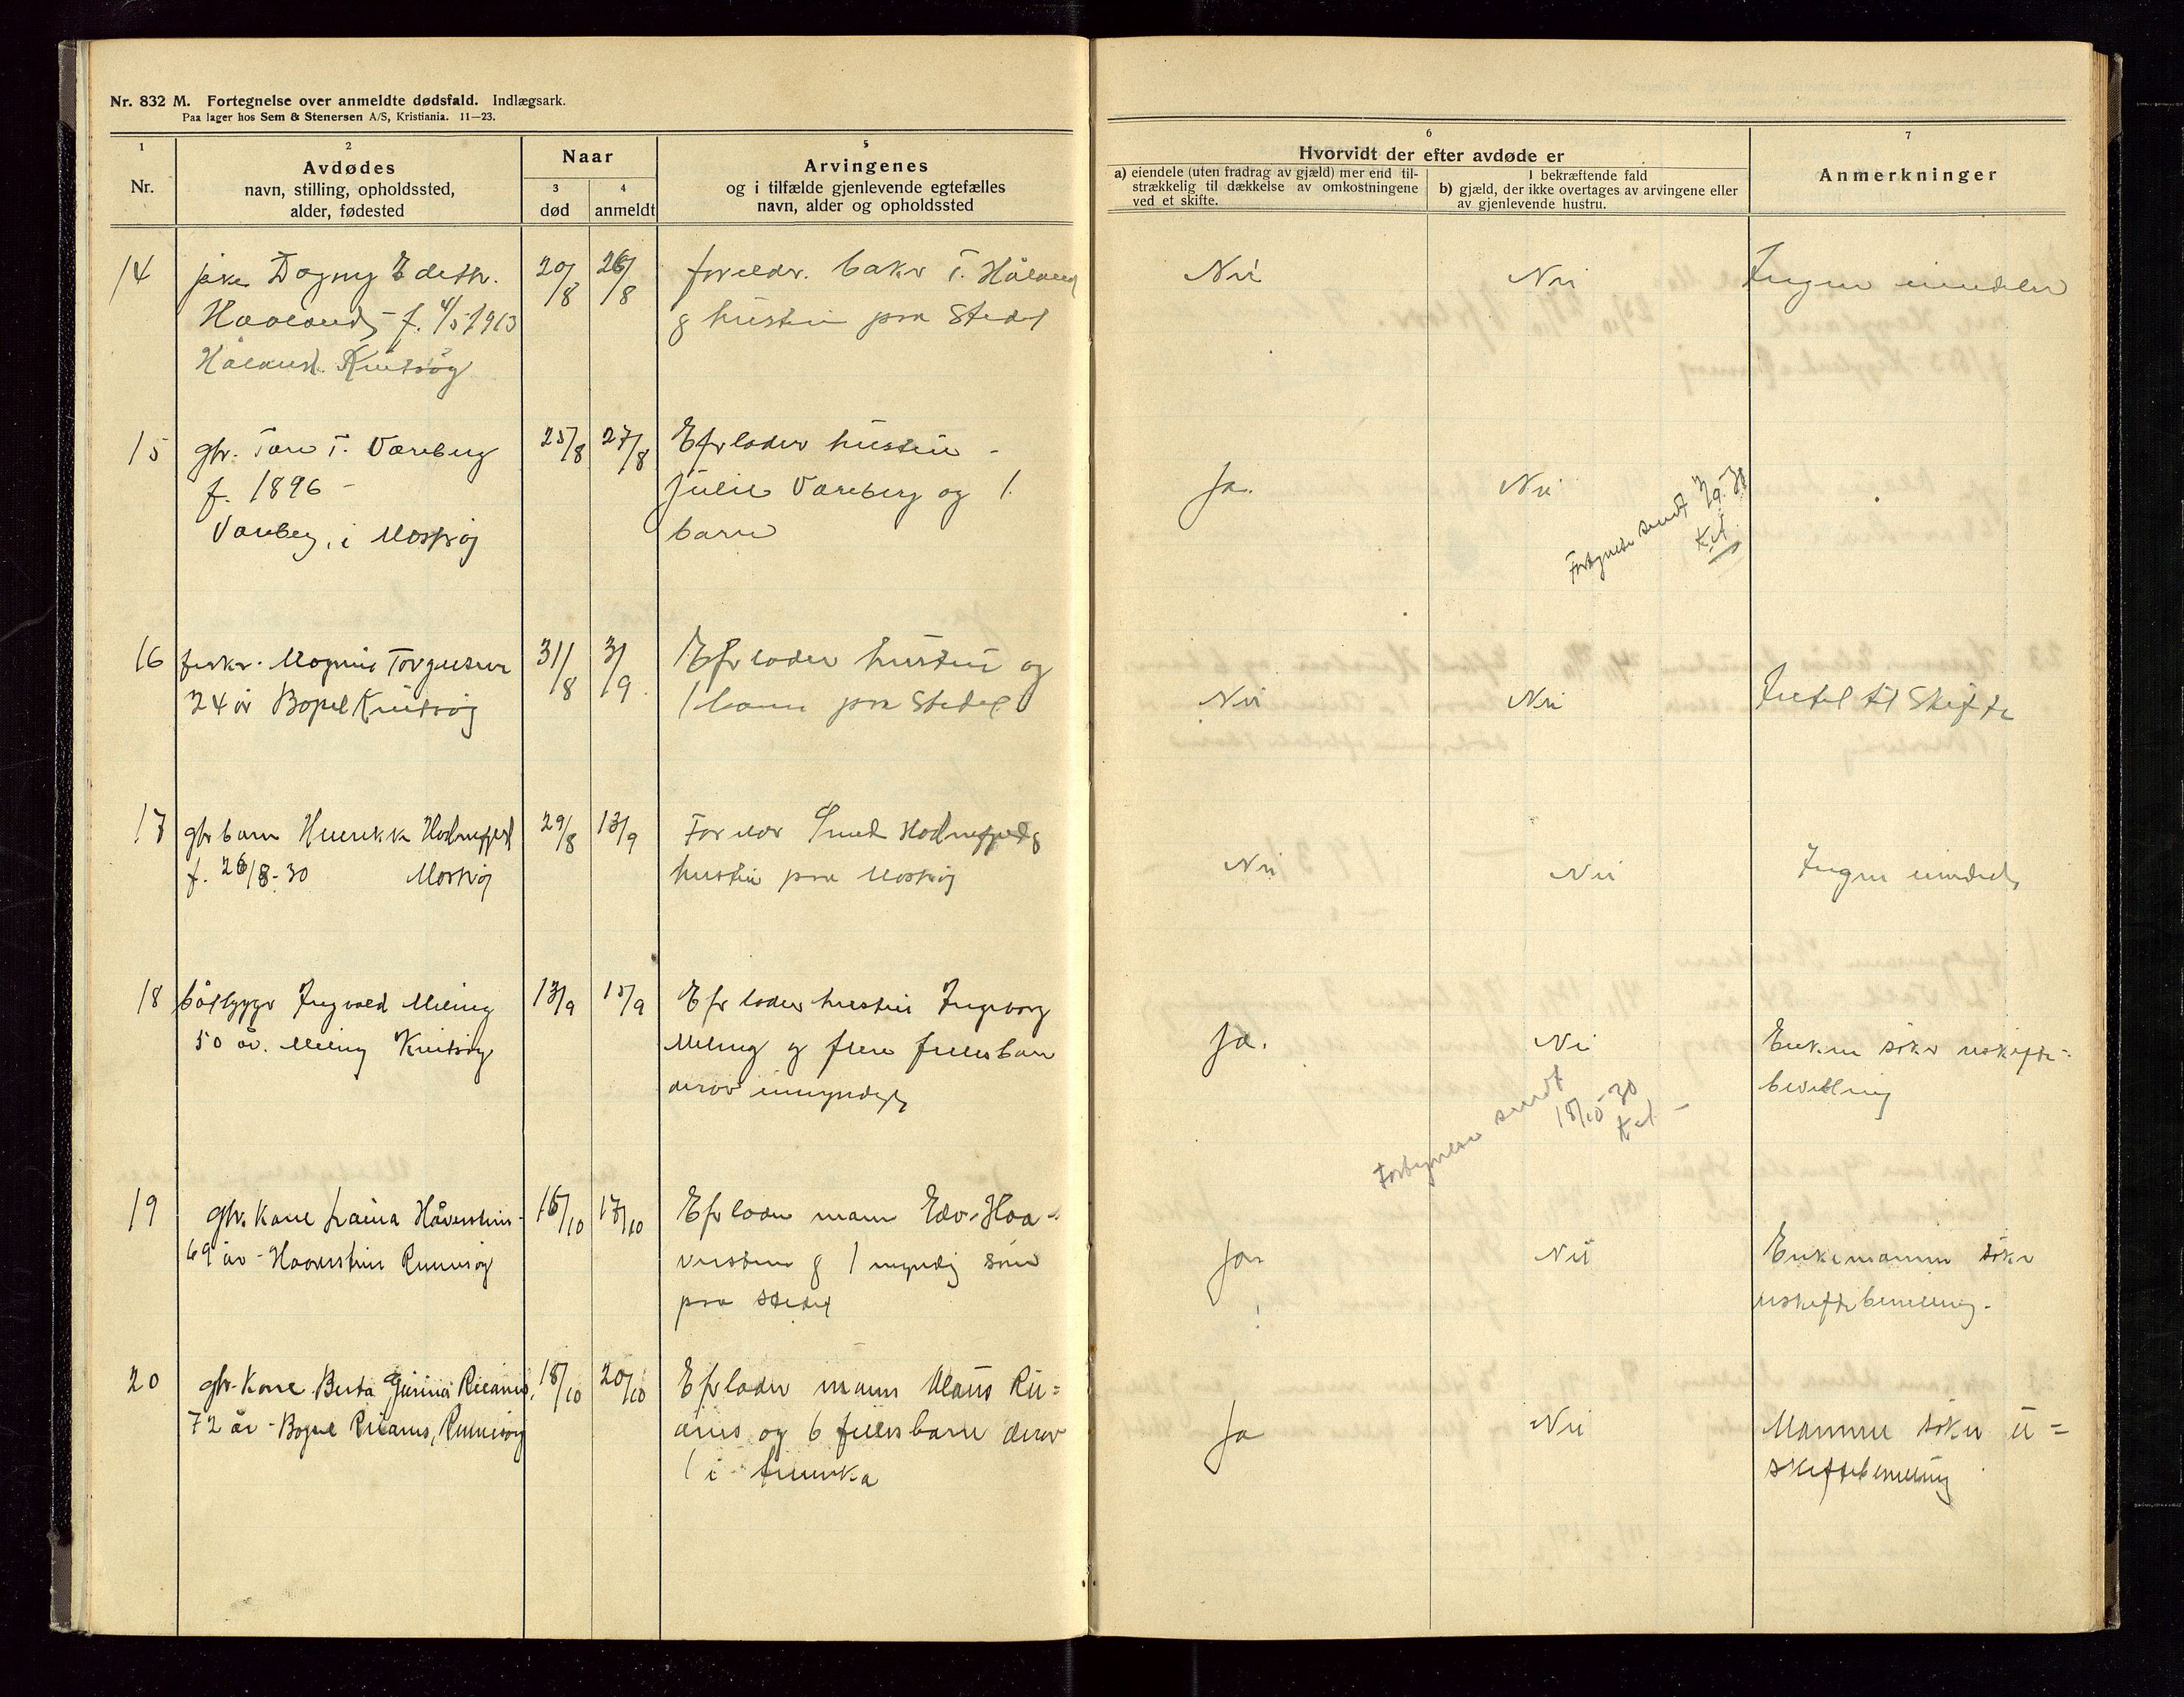 Nr. 832 M. Fortegnelse over anmeldte dødsfald. Indlægsark.
Paa lager hos Sem & Stenersen A/S, Kristiania. 11—23.
1
Nr.
2
Avdødes
navn, stilling, opholdssted,
alder, fødested
Naar
3
død
4
anmeldt
5
Arvingenes
og i tilfælde gjenlevende egtefælles
navn, alder og opholdssted
6
Hvorvidt der efter avdøde er
a) eiendele (uten fradrag av gjæld) mer end til-
strækkelig til dækkelse av omkostningene
ved et skifte.
I bekræftende fald
b) gjæld, der ikke overtages av arvingene eller
av gjenlevende hustru.
7
Anmerkninger
14
pike Dagny Edith.
Haaland f. 4/5 1913
Håland. Kvitsøy
20/8
26/8
foreldr. baker T. Håland
g hustru paa Stedet
Nei
Nei
Ingen eiendeler
15
gbr. Tore T. Vareberg
f. 1896 -
Vareberg, i Mosterøy
25/8
27/8
Efterlader hustru -
Julie Vareberg og 1.
barn
Ja.
Nei
Fortegnelse sendt
16
Magnus Torgersen
34 år Bopel Kvitsøy
31/8
3/9
Efterlader hustru og
1 barn paa Stedet
Nei
Nei
Intet til Skifte
17
gbr barn Henrikk Hodnefjeld
f. 26/8-30 Mosterøy
29/8
13/9
Foreldr Smed Hodnefjeld g
hustru paa Mosterøy
Nei
Nei
Ingen eiendele
18
båtbygger Ingvald Meling
50 år. Meling Kvitsøy
13/9
15/9
Efterlader hustru Ingeborg
Meling g flere fellesbarn
derav umyndige
Ja.
Nei
Fortegnelse sendt
18/10-30
Enken søker uskifte-
bevilling
19
gbr. kone Laura Håverstein-
69 år - Haaverstein Rennesøy
16/10
17/10
Efterlader mann Edv. Haa-
verstein g 1 myndig sønn
paa Stedet
Ja
Nei
Enkemannen søker
uskiftebevilling.
20
gbr. Kone Berta Gurina
72 år - Bopel Rennesøy
18/10
20/10
Efterlader mann Klaus
og 6 fellesbarn derav
1 i Amerika
Ja
Nei
Mannen søker u=
skiftebevilling